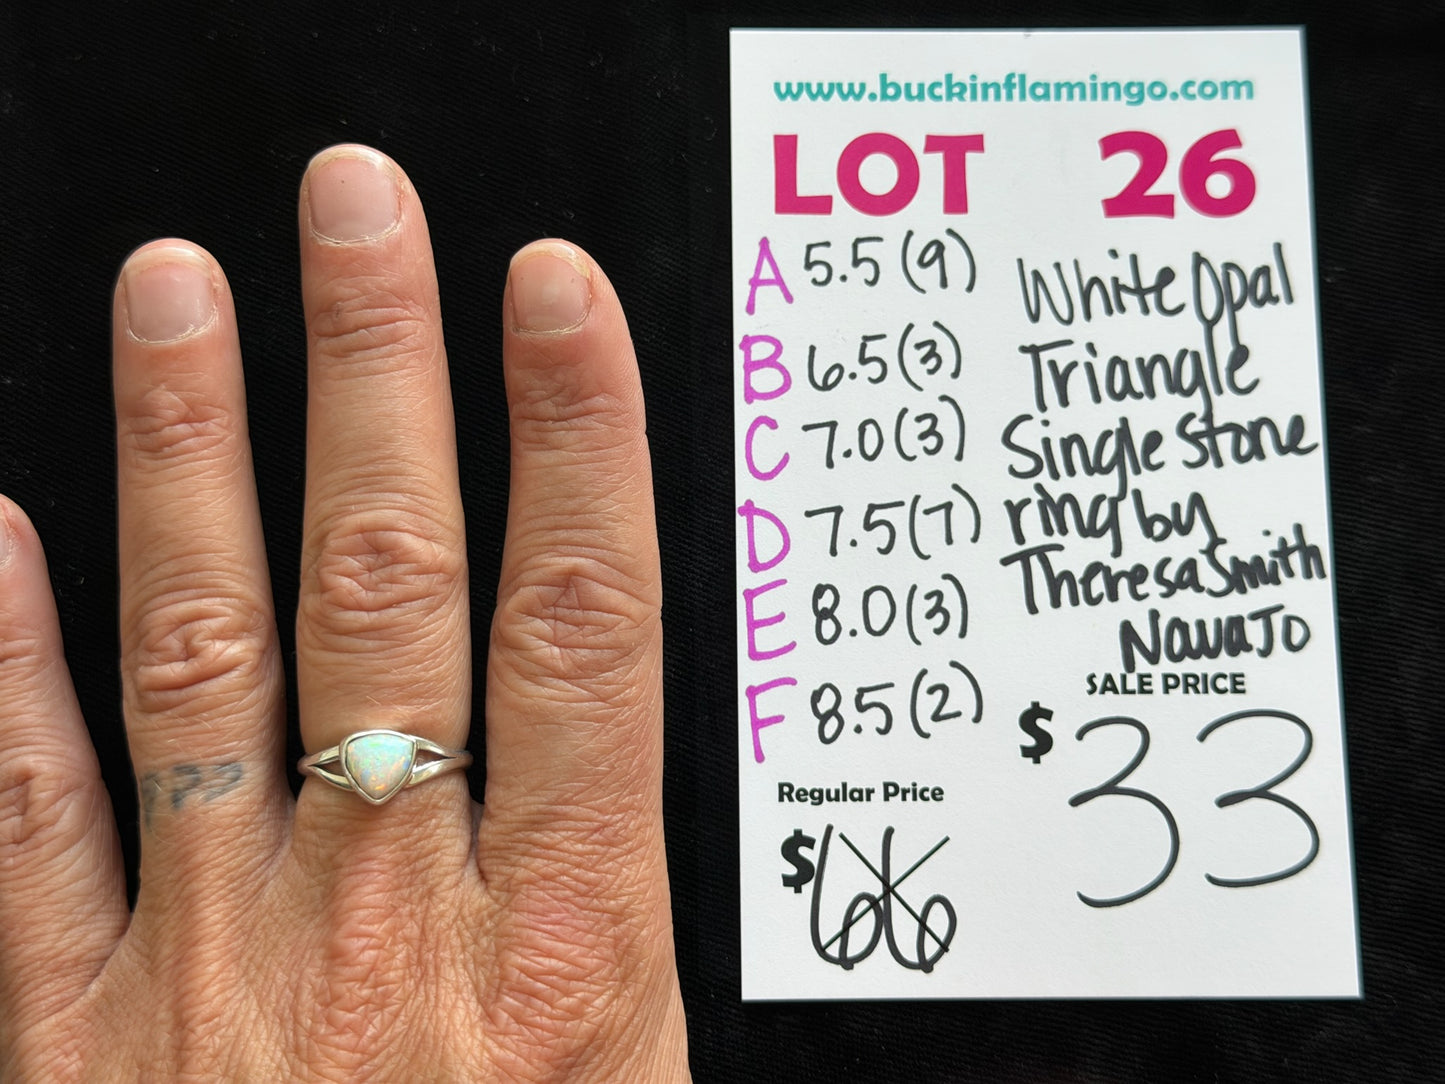 www.buckinflamingo.com
LOT 26
A 5.5 (9)
B 6.5 (3)
C 7.0 (3)
D 7.5 (7)
E 8.0 (3)
F 8.5 (2)
White Opal
Triangle
Single Stone
ring by
Theresa Smith
Navajo
SALE PRICE
$ 33
Regular Price
$ 66